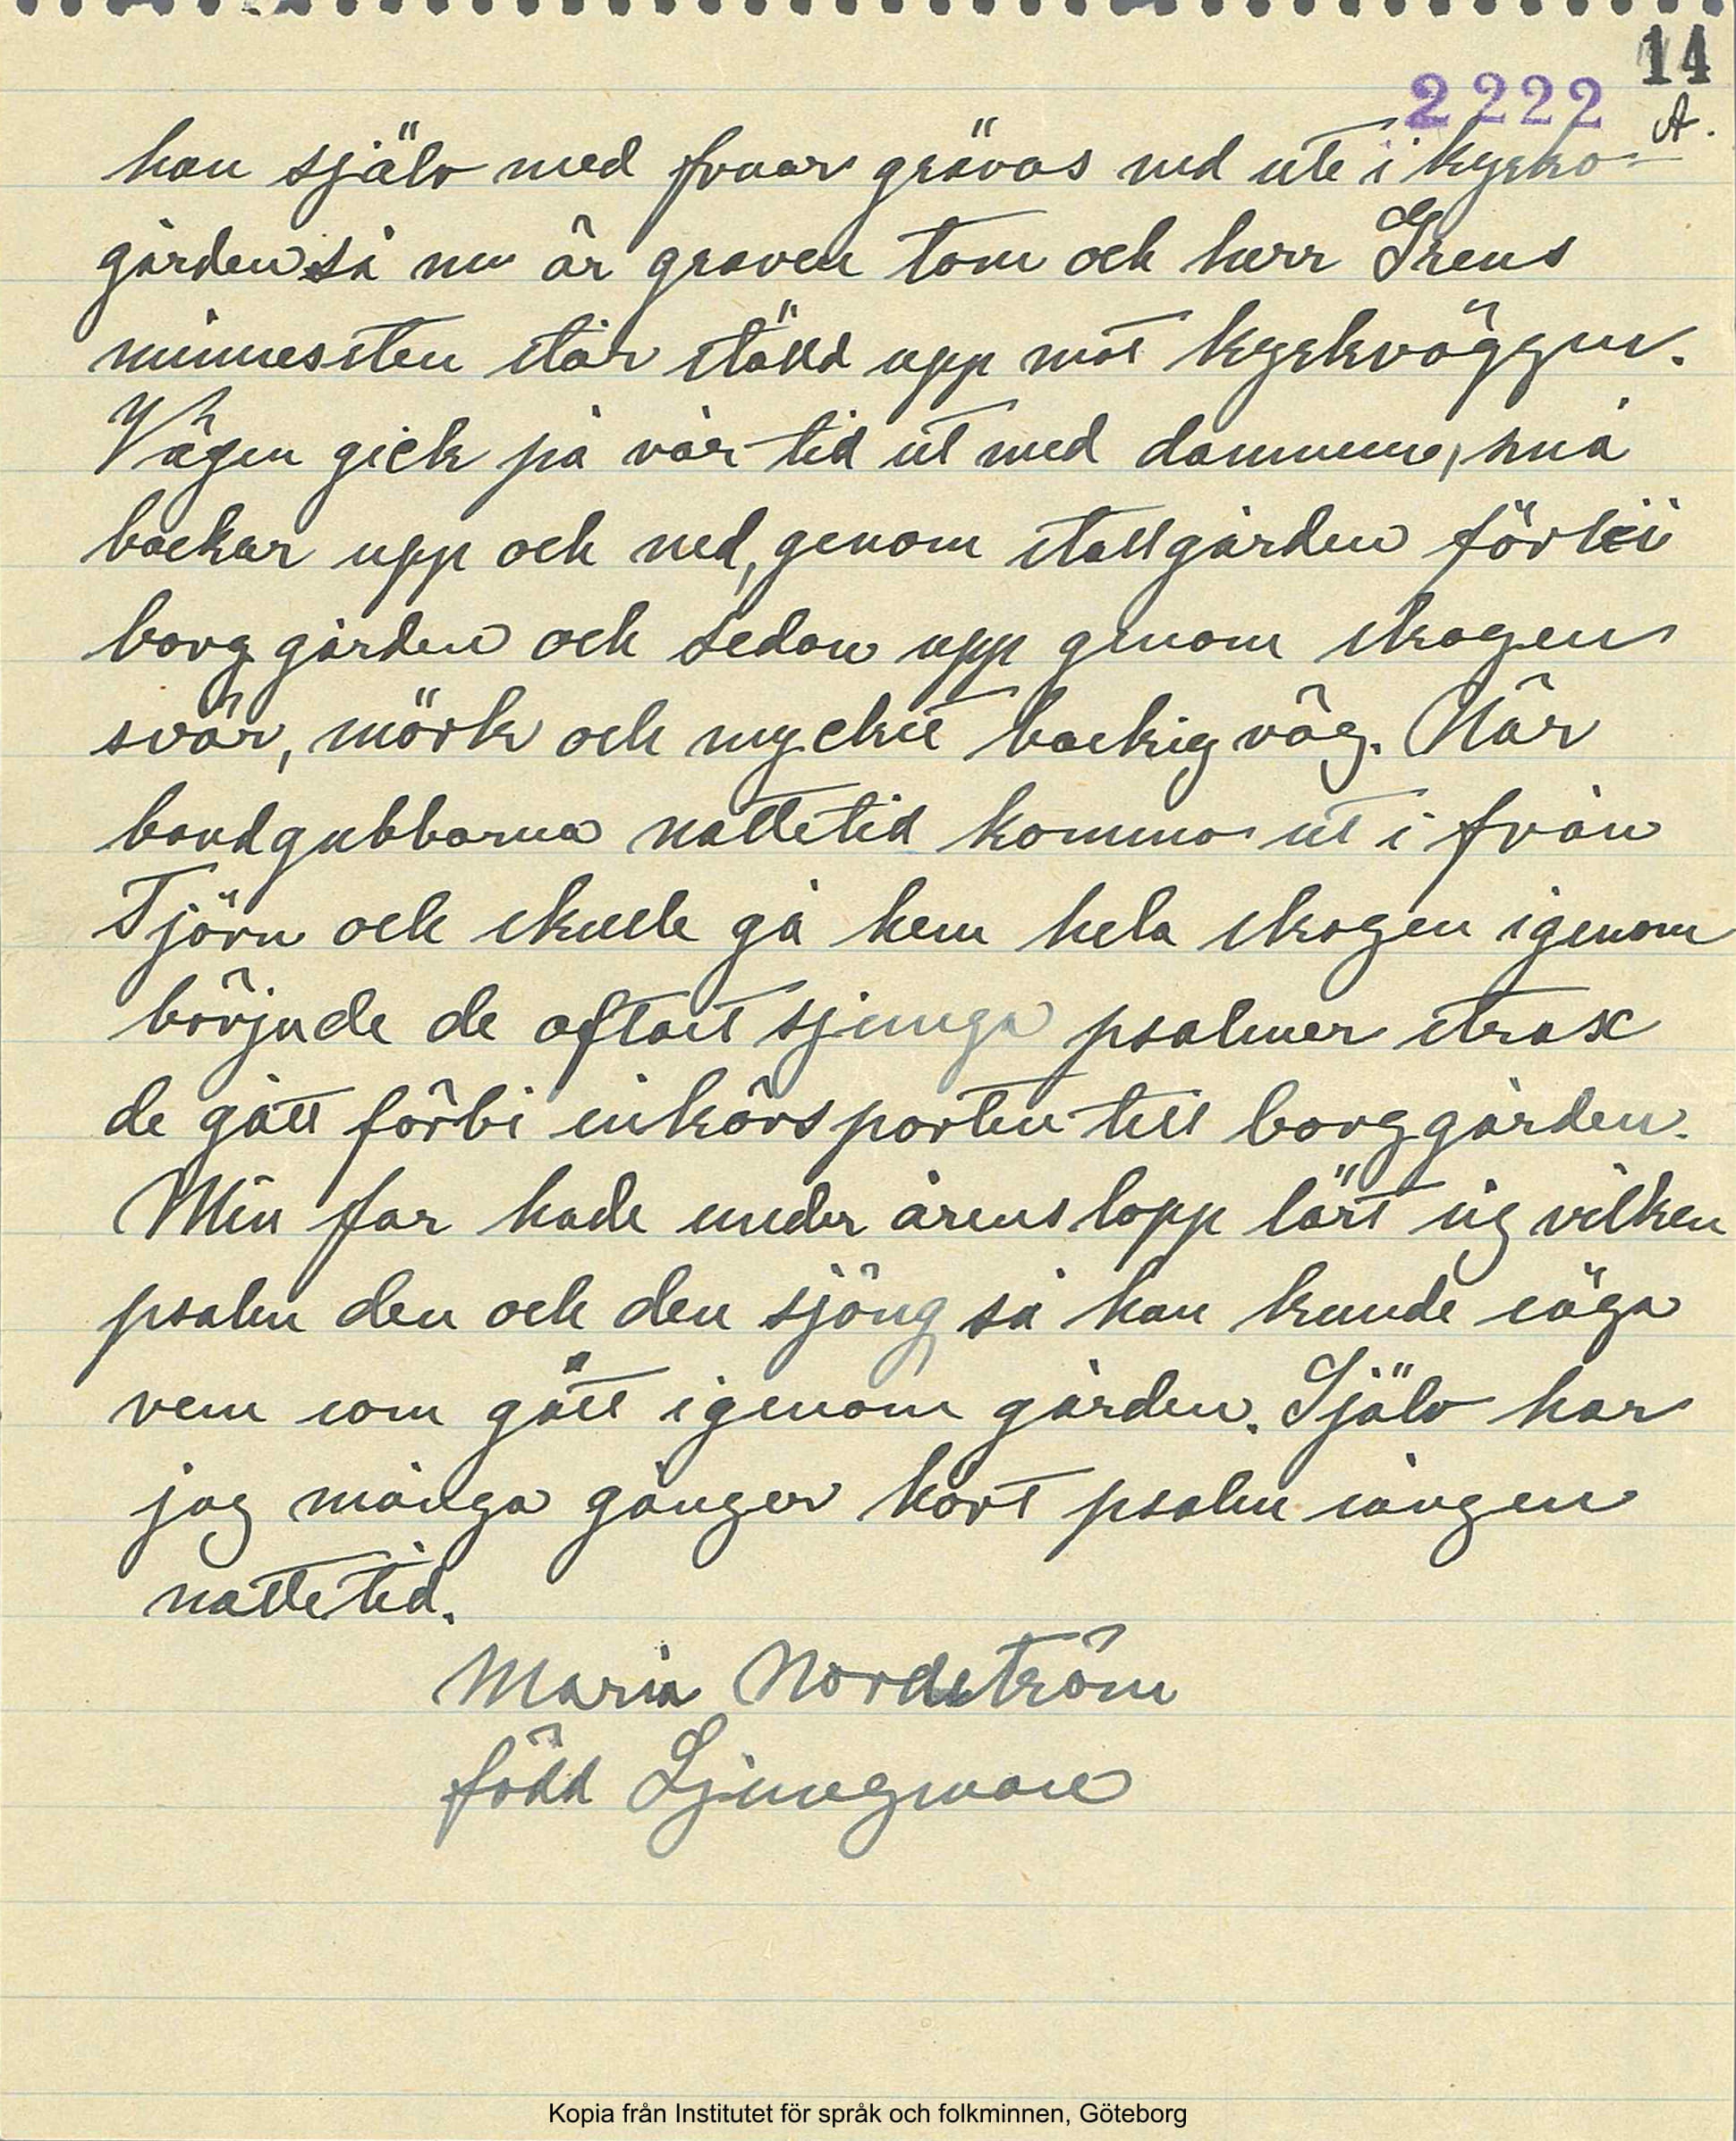 14
2222 A.
han själv med fruar grävas ned ute i kyrko-
gården så nu är graven tom och herr Grens
minnessten står ställd upp mot kyrkväggen.
Vägen gick på vår tid ut med dammene, små
backar upp och ned, genom stallgården förbi
borggården och sedan upp genom skogen
svår, mörk och mycket backig väg. När
bondgubbarna nattetid komma ut i från
Tjörn och skulle gå hem hela skogen igenom
började de oftast sjunga psalmer strax
de gått förbi inkörsporten till borggården.
Min far hade under årens lopp lärt sig vilken
psalm den och den sjöng så han kunde säga
vem som gått igenom gården. Själv har
jag många gånger hört psalm sången
nattetid.
Maria Nordström
född Ljungman
Kopia från Institutet för språk och folkminnen, Göteborg